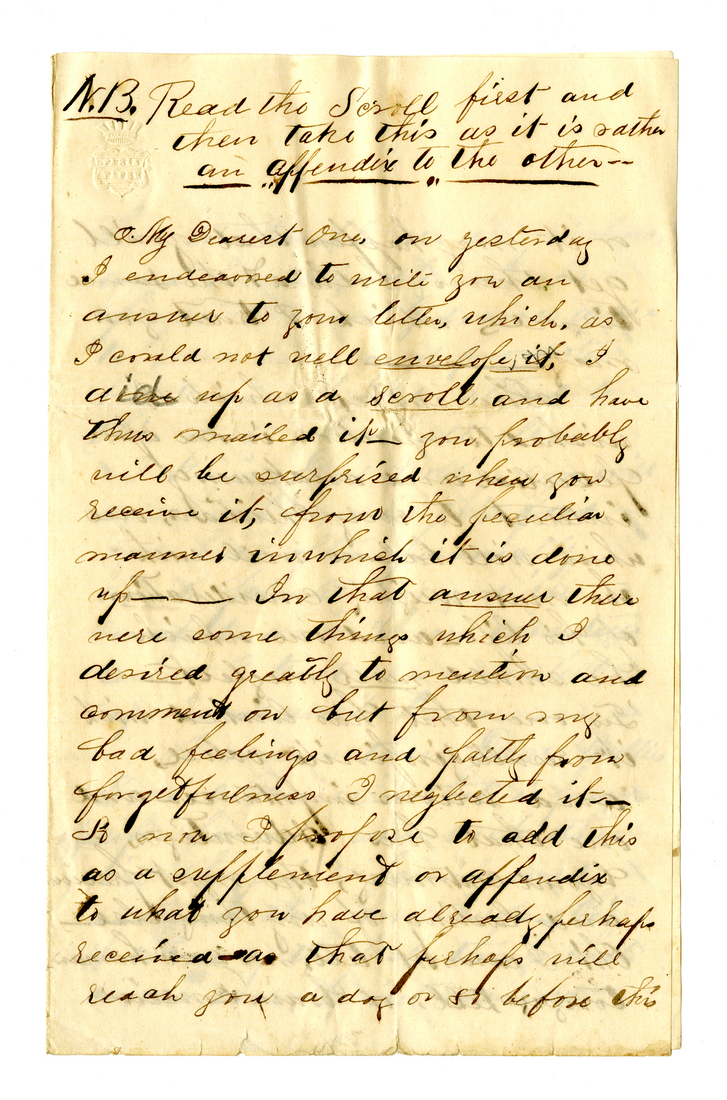 N.B. Read the Scroll first and
then take this as it is rather
an "appendix" to the other--
My Dearest One, on yesterday
I endeavored to write you an
answer to your letter, which, as
I could not well envelope it, I
did up as a scroll and have
thus mailed it— you probably
will be surprised when you
receive it, from the peculiar
manner in which it is done
up—— In that answer there
were some things which I
desired greatly to mention and
comment on but from my
bad feelings and partly from
forgetfulness I neglected it—
So now I propose to add this
as a supplement or appendix
to what you have already perhaps
received—as that perhaps will
reach you a day or so before this